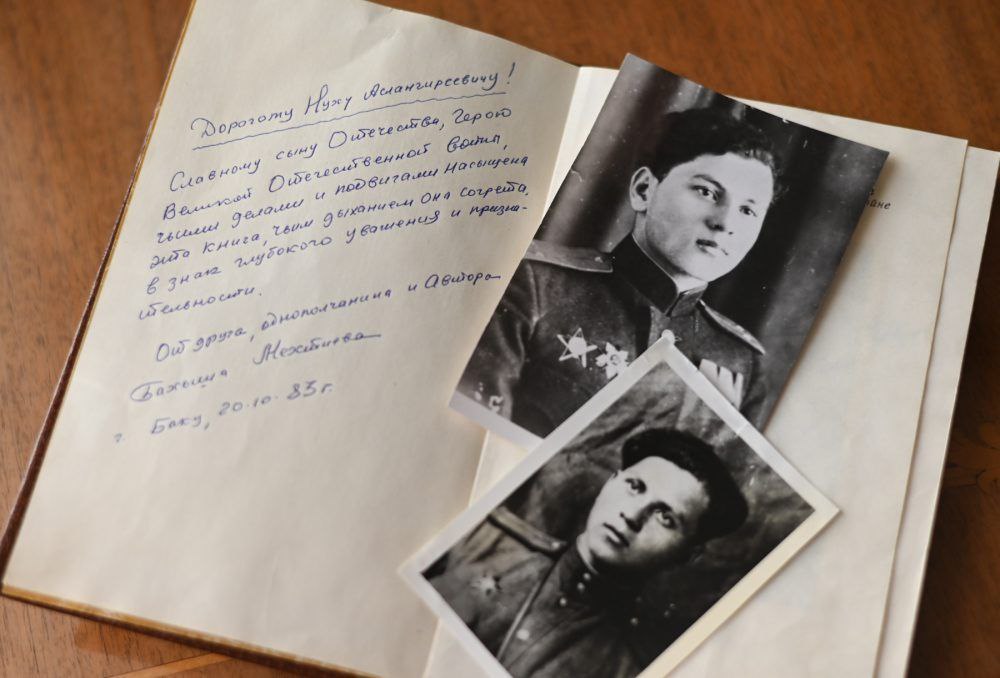 Дорогому Нуху Аслангиреевичу!
Славному сыну Отечества, Герою
Великой Отечественной войны,
чьими делами и подвигами насыщена
эта книга, чьим дыханием она согрета,
в знак глубокого уважения и призна-
тельности.
От друга, однополчанина и Автора
Мехтиева
г. Баку, 20.10.83г.